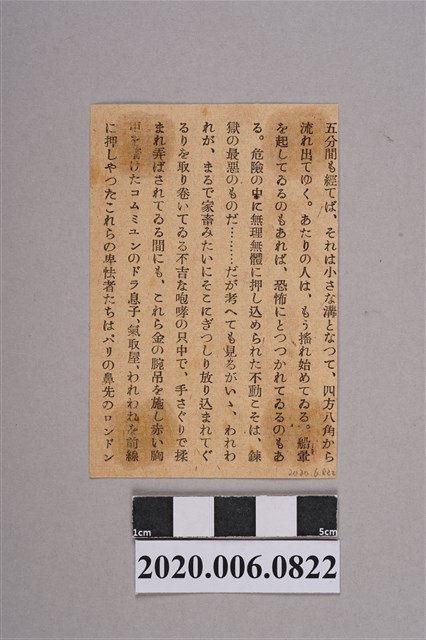 五分間も經てば、それは小さな溝となつて、四方八角から
流れ出てゆく。あたりの人は、もう搖れ始めてゐる。船暈
を起してゐるのもあれば、恐怖にとつつかれてゐるのもあ
る。危險の中に無理無體に押し込められた不動こそは、鍊
獄の最惡のものだ………だが考へても見るがいゝ、われわ
れが、まるで家畜みたいにそこにぎつしり放り込まれてぐ
るりを取り卷いてゐる不吉な咆哮の只中で、手さぐりで揉
まれ弄ばされてゐる間にも、これら金の腕吊を施し赤い胸
けたコムミユンのドラ息子、氣取屋、われわれを前線
に押しやつたこれらの卑怯者たちはパリの鼻先のロンドン
2020.6.822
1cm
5cm
2020.006.0822